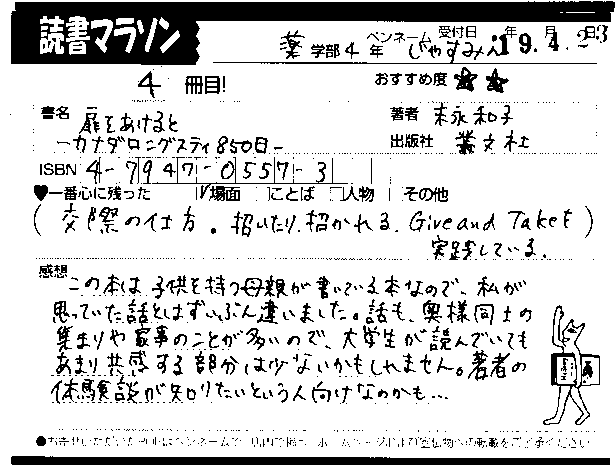 読書マラソン
薬 学部 4 年 ペンネーム じゃすみん 受付日 '19年 4月 23日
4 冊目! おすすめ度 ★ ★
書名 扉をあけると 著者 末永和子
－カナダロングスティ850日－ 出版社 叢文社
ISBN 4-7947-0557-3
♥一番心に残った ☑場面 □ことば □人物 □その他
(交際の仕方。招いたり、招かれる。Give and Takeを
実践している。)
感想
この本は子供を持つ母親が書いている本なので、私が
思っていた話とはずいぶん違いました。話も、奥様同士の
集まりや家事のことが多いので、大学生が読んでいても
あまり共感する部分は少ないかもしれません。著者の
体験談が知りたいという人向けなのかも…
●お寄せいただいた ペンネームで、店内で ホームページおよび宣伝物への転載をご了承ください